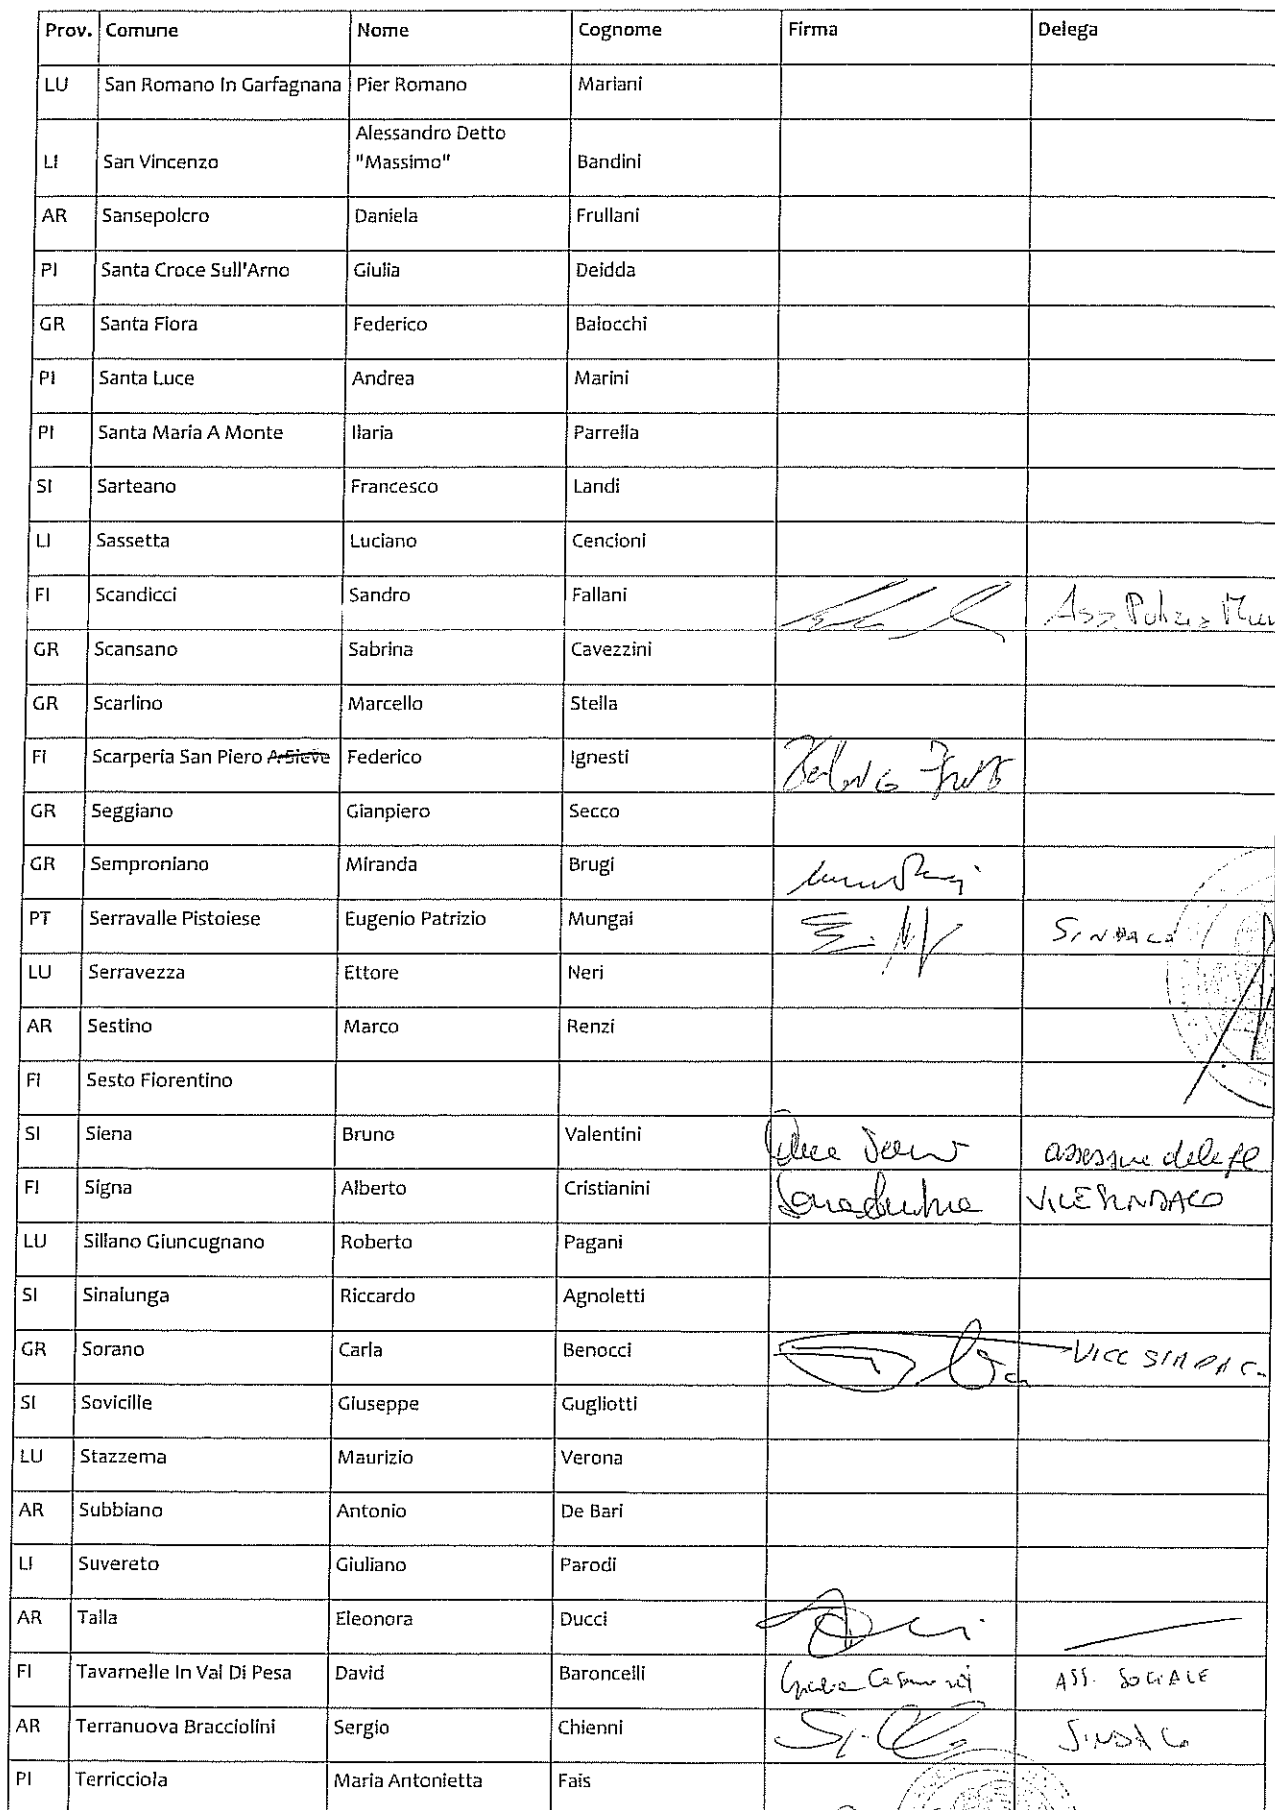 Prov. Comune Nome Cognome Firma Delega
LU San Romano In Garfagnana Pier Romano Mariani
LI San Vincenzo Alessandro Detto "Massimo" Bandini
AR Sansepolcro Daniela Frullani
PI Santa Croce Sull'Arno Giulia Deidda
GR Santa Fiora Federico Balocchi
PI Santa Luce Andrea Marini
PI Santa Maria A Monte Ilaria Parrella
SI Sarteano Francesco Landi
LI Sassetta Luciano Cencioni
FI Scandicci Sandro Fallani Ass. Polizia Mun
GR Scansano Sabrina Cavezzini
GR Scarlino Marcello Stella
FI Scarperia San Piero A Sieve Federico Ignesti
GR Seggiano Gianpiero Secco
GR Semproniano Miranda Brugi
PT Serravalle Pistoiese Eugenio Patrizio Mungai SINDACO
LU Serravezza Ettore Neri
AR Sestino Marco Renzi
FI Sesto Fiorentino
SI Siena Bruno Valentini assessore
FI Signa Alberto Cristianini VICESINDACO
LU Sillano Giuncugnano Roberto Pagani
SI Sinalunga Riccardo Agnoletti
GR Sorano Carla Benocci VICE SINDACO
SI Sovicille Giuseppe Gugliotti
LU Stazzema Maurizio Verona
AR Subbiano Antonio De Bari
LI Suvereto Giuliano Parodi
AR Talla Eleonora Ducci
FI Tavarnelle In Val Di Pesa David Baroncelli ASS. SOCIALE
AR Terranuova Bracciolini Sergio Chienni SINDACO
PI Terricciola Maria Antonietta Fais